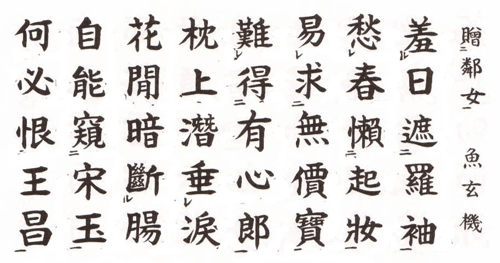 贈鄰女 魚玄機
羞日遮羅袖
愁春懶起妝
易求無價寶
難得有心郎
枕上潛垂淚
花閒暗斷腸
自能窺宋玉
何必恨王昌